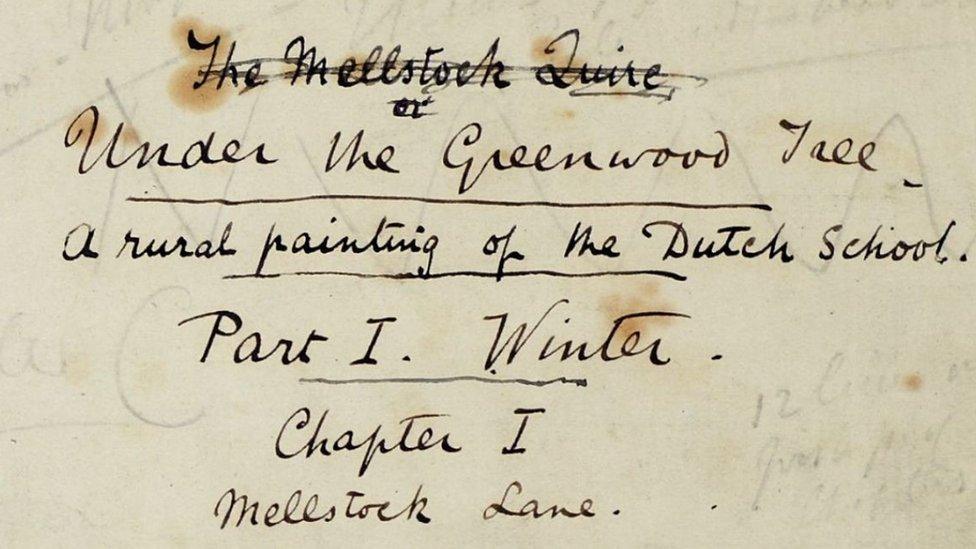 The Mellstock Quire
or
Under the Greenwood Tree.
A rural painting of the Dutch School.
Part I. Winter.
Chapter I
Mellstock Lane.